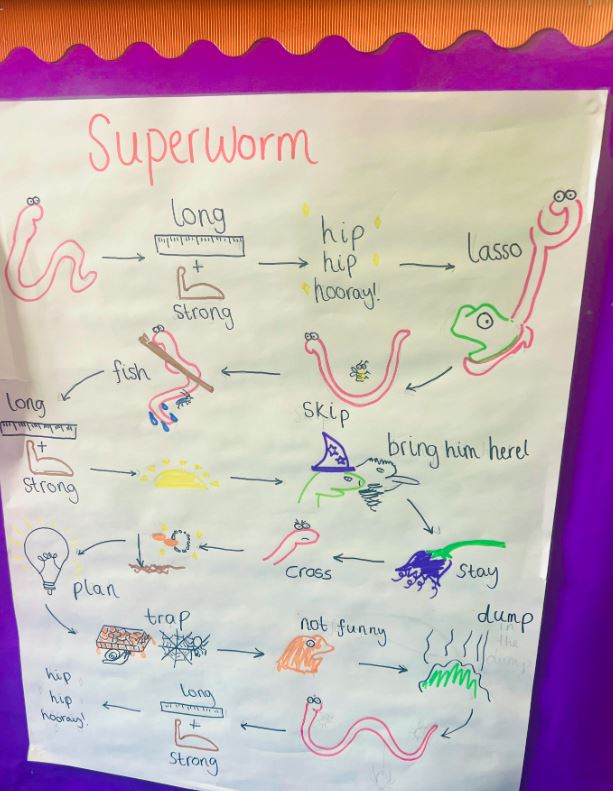 Superworm
long
+
strong
hip
hip
hooray!
lasso
skip
fish
long
+
strong
bring him here!
stay
cross
plan
trap
not funny
dump
in
the
dump
long
+
strong
hip
hip
hooray!